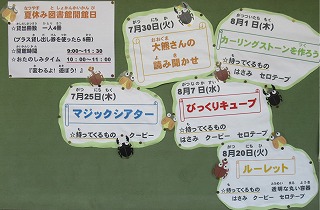 なつやす としょかんかいかん び
夏休み図書館開館日
☆貸出冊数 一人4冊
(プラス貸し出し券を使ったら 6冊)
☆開館時間 9:00〜11:30
☆おたのしみタイム 10:00〜11:00
7月30日(火)
大熊さんの
読み聞かせ
8月1日(木)
カーリングストーンを作ろう
☆持ってくるもの
はさみ セロテープ
7月25日(木)
マジックシアター
☆持ってくるもの クーピー
8月7日(水)
びっくりキューブ
☆持ってくるもの クーピー
はさみ セロテープ
8月20日(火)
ルーレット
☆持ってくるもの 透明な丸い容器
クーピー はさみ セロテープ